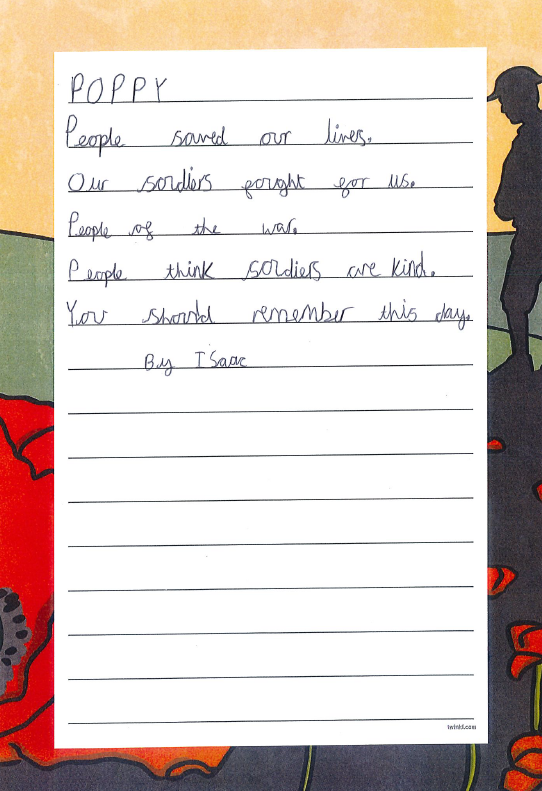 POPPY
People saved our lives.
Our soldiers fought for us.
People of the war.
People think soldiers are kind.
You should remember this day.
By Isaac
twinkl.com